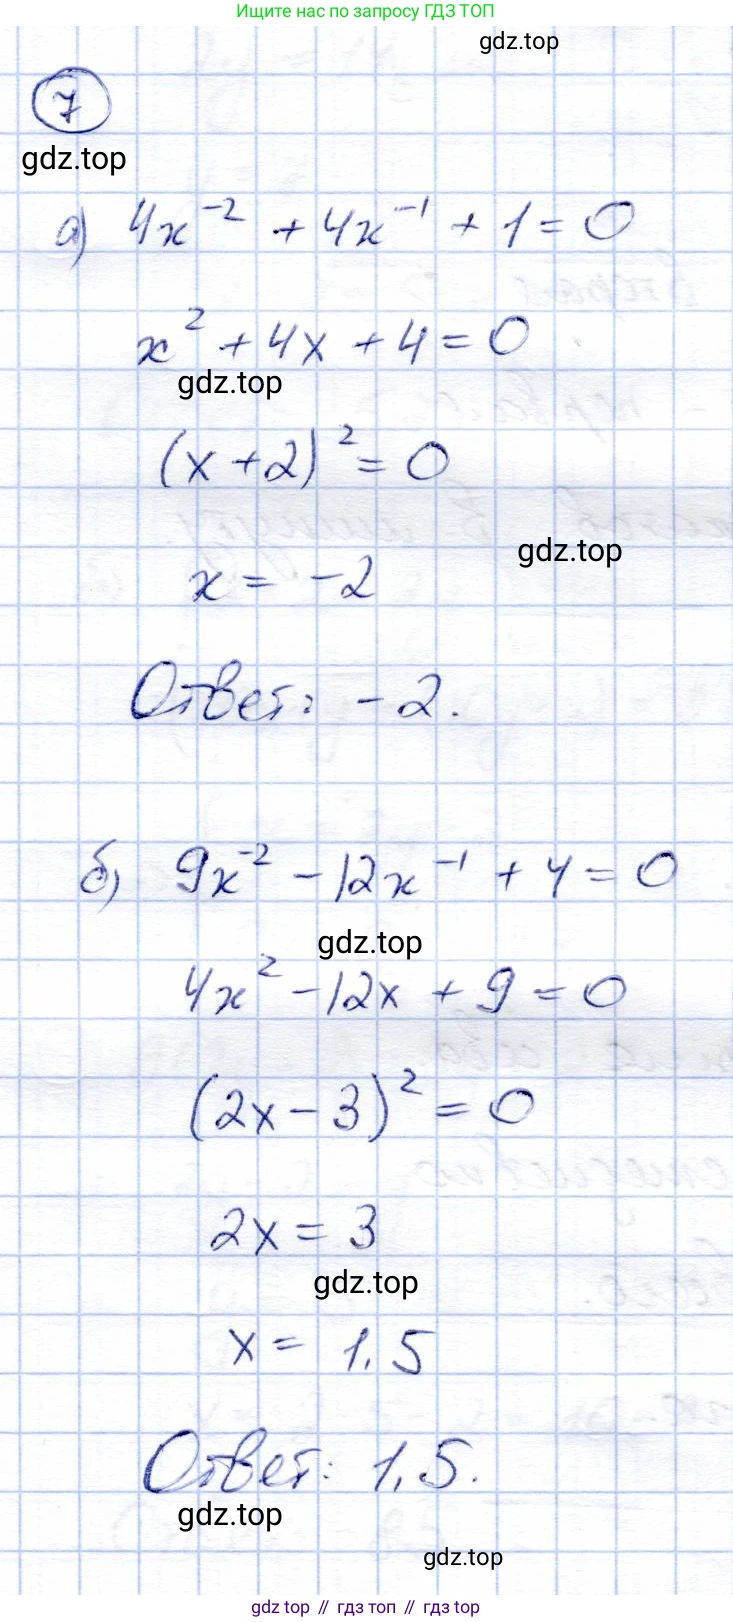 Ищите нас по запросу ГДЗ ТОП
gdz.top
7
gdz.top
а) 4x⁻² + 4x⁻¹ + 1 = 0
x² + 4x + 4 = 0
gdz.top
(x + 2)² = 0
gdz.top
x = -2
Ответ: -2.
б) 9x⁻² - 12x⁻¹ + 4 = 0
gdz.top
4x² - 12x + 9 = 0
(2x - 3)² = 0
2x = 3
gdz.top
x = 1,5
Ответ: 1,5.
gdz.top
gdz.top
gdz top // гдз топ // gdz top